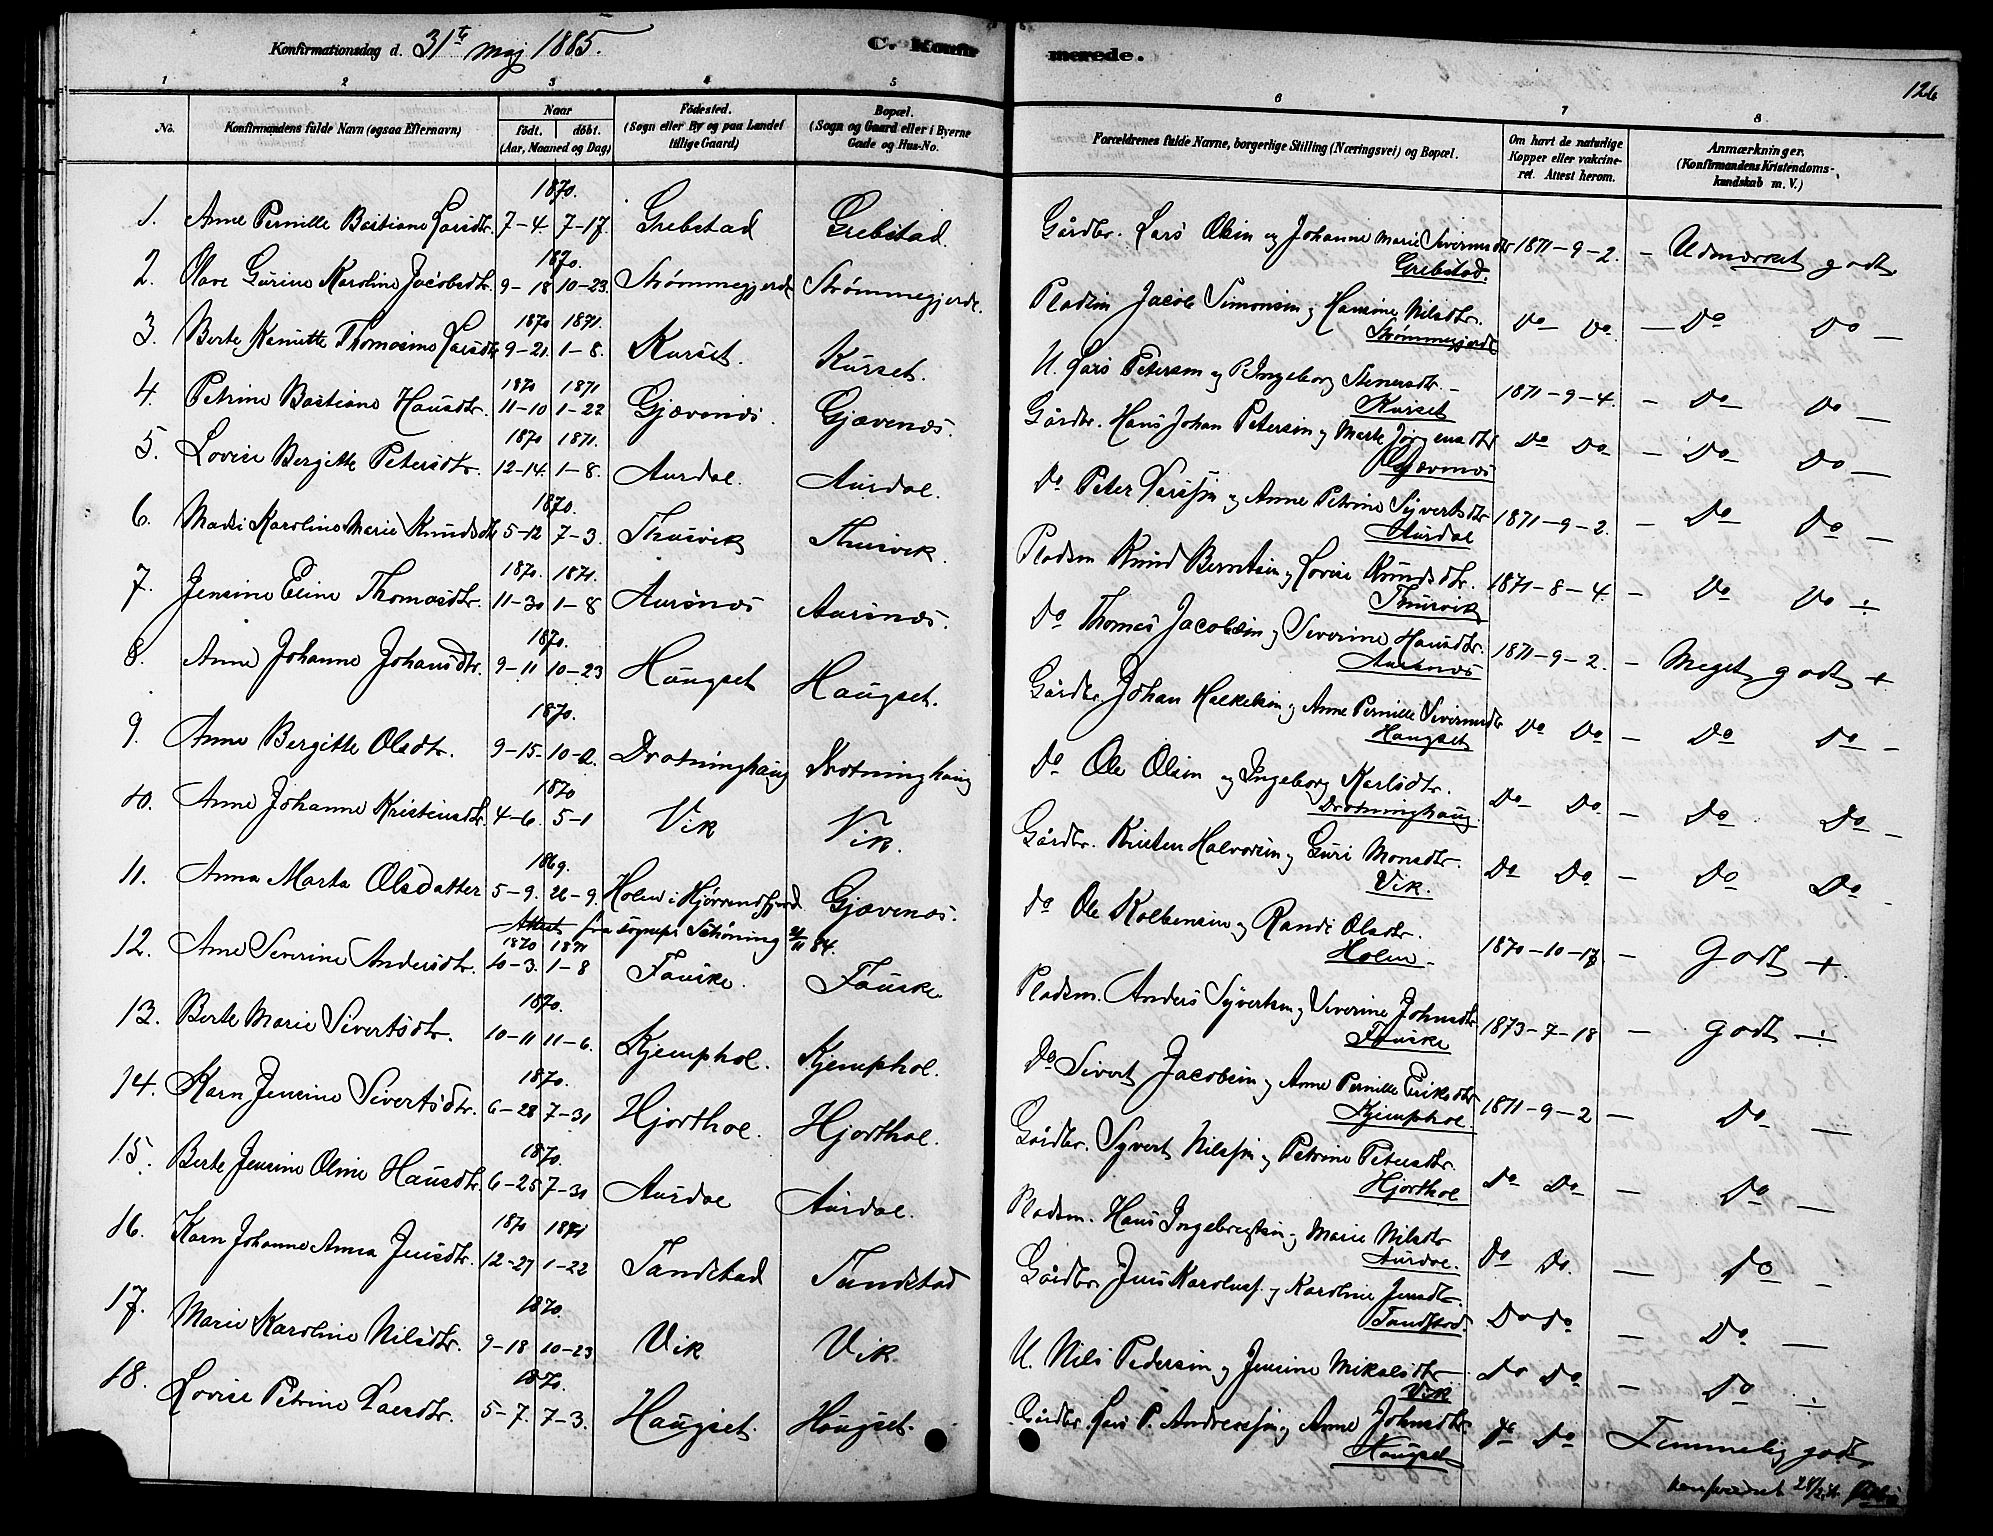 Konfirmationsdag d. 31te Maj 1885. C. Konfirmerede. 126
1 2 3 4 5 6 7 8
No. Konfirmandens fulde Navn (ogsaa Efternavn) Naar født. døbt. (Aar, Maaned og Dag) Fødested. (Sogn eller By og paa Landet tillige Gaard) Bopæl. (Sogn og Gaard eller i Byerne Gade og Hus-No. Forældrenes fulde Navne, borgerlige Stilling (Næringsvei) og Bopæl. Om havt de naturlige Kopper eller vakcineret. Attest herom. Anmærkninger. (Konfirmandens Kristendomskundskab m. V.)
1870.
1. Anne Pernille Bastiane Larsdtr. 7-4. 7-17. Grebstad Grebstad. Gårdbr. Lars Olsen og Johanne Marie Siversdtr Grebstad. 1871-9-2. - Udmærket godt
1870.
2. Olave Gurine Karoline Jacobsdtr. 9-18 10-23. Strømmegjerde Strømmegjerde. Pladsm Jacob Simonsen og Hansine Nilsdtr. Strømmegjerde Do Do. - Do Do -
1870 1871.
3. Berte Kanutte Thomasine Larsdtr 9-21. 1-8. Kurset. Kurset. U. Lars Petersen og Ingeborg Stenersdtr. - Kurset 1871-9-4. - Do Do -
1870 1871
4. Petrine Bastiane Hansdtr. 11-10 1-22 Gjævenæs. Gjævenæs. Gårdbr. Hans Johan Petersen og Marte Jørgensdtr Gjævenæs Do Do - Do Do -
1870 1871.
5. Lovise Bergitte Petersdtr. 12-14. 1-8. Aurdal. Aurdal. Do Peter Larssen og Anne Petrine Syvertsdtr Aurdal 1871-9-2. - Do Do -
1870.
6. Madsi Karoline Marie Knudsdtr 5-12 7-3. Thusvik Thusvik. Pladsm Knud Berntsen og Lovise Knudsdtr. Thusvik 1871-8-4. - Do Do ÷
1870. 1871.
7. Jensine Eline Thomasdtr. 11-30 1-8 Aursnæs Aursnæs. Do Thomas Jacobsen og Severine Hansdtr. Aursnæs 1871-9-2. - Meget godt +
1870.
8. Anne Johanne Johansdtr. 9-11 10-23 Haugset Haugset. Gårdbr. Johan Halkelsen og Anne Pernille Siversdtr Haugset Do Do - Do Do -
1870.
9. Anne Bergitte Olsdtr. 9-15- 10-2. Drotninghaug Drotninghaug Do Ole Olsen og Ingeborg Karlsdtr. Drotninghaug. Do Do. - Do Do -
1870
10. Anne Johanne Kristensdtr. 4-6. 5-1 Vik Vik. Gårdbr. Kristen Halvorsen og Guri Monsdtr. Vik. Do Do - Do Do -
1869.
11. Anna Marta Olsdatter 5-9. 26-9. Holen i Hjørrendfjord Gjævenæs. Do Ole Kolbensen og Randi Olsdtr. Holen - 1870-10-17 - Godt +.
Attest fra sognepr Schøning 21/11 84.
1870 1871
12. Ane Severine Andersdtr. 10-3. 1-8 Fauske. Fauske. Pladsm. Anders Syvertsen og Severine Johnsdtr Fauske 1873-7-18 - godt ÷
1870.
13. Berte Marie Sivertsdtr. 10-11 11-6. Kjemphol. Kjemphol. Do Sivert Jacobsen og Anne Pernille Eriksdtr Kjemphol. 1871-9-2 - Do -
1870.
14. Karn Jensine Sivertsdtr. 6-28 7-31 Hjorthol. Hjorthol. Gårdbr. Syvert Nilssen og Petrine Petersdtr. Hjorthol Do Do - Do -
1870.
15. Berte Jensine Oline Hansdtr. 6-25 7-31 Aurdal Aurdal. Pladsm. Hans Ingebregtsen og Marie Nilsdtr Aurdal. Do Do. - Do -
1870 1871
16. Karn Johanne Anna Jensdtr. 12-27 1-22 Tandstad Tandstad Gårdbr Jens Karolus. og Karoline Jensdtr. Tandstad. Do Do - Do -
1870.
17. Marie Karoline Nilsdtr. 9-18 10-23 Vik Vik. U. Nils Pedersen og Jensine Mikalsdtr Vik Do Do - Do ÷
1870.
18. Lovise Petrine Larsdtr. 5-7. 7-3. Haugset. Haugset. Gårdbr. Lars P. Andreassen og Anne Johnsdtr. Haugset Do Do Temmelig godt,